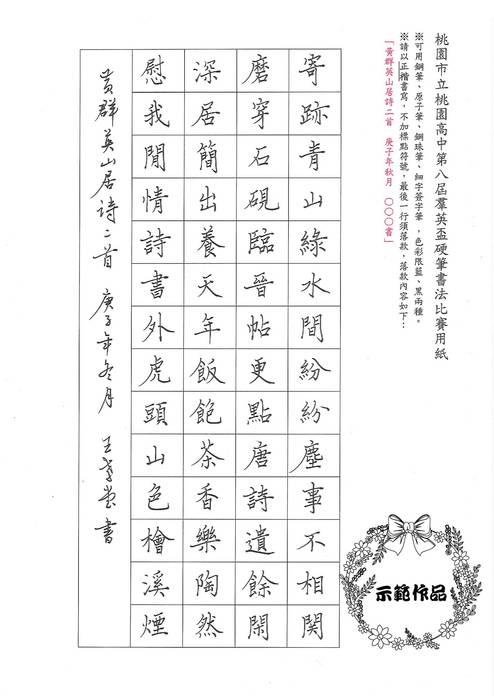 桃園市立桃園高中第八屆羣英盃硬筆書法比賽用紙
※可用鋼筆、原子筆、鋼珠筆、細字簽字筆，色彩限藍、黑兩種。
※請以正楷書寫，不加標點符號，最後一行須落款，落款內容如下：
「黃群英山居詩二首 庚子年秋月 ○○○書」
寄跡青山綠水間紛紛塵事不相関
磨穿石硯臨晉帖更點唐詩遺餘閑
深居簡出養天年飯飽茶香樂陶然
慰我閒情詩書外虎頭山色檜溪煙
黃群英山居詩二首 庚子年冬月 王堂書
示範作品